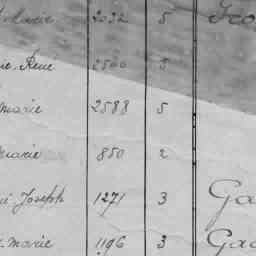 Marie 2032 5
René 2560 5
marie 2588 5
marie 850 2
Joseph 1271 3 Ga
marie 1196 3 Gad